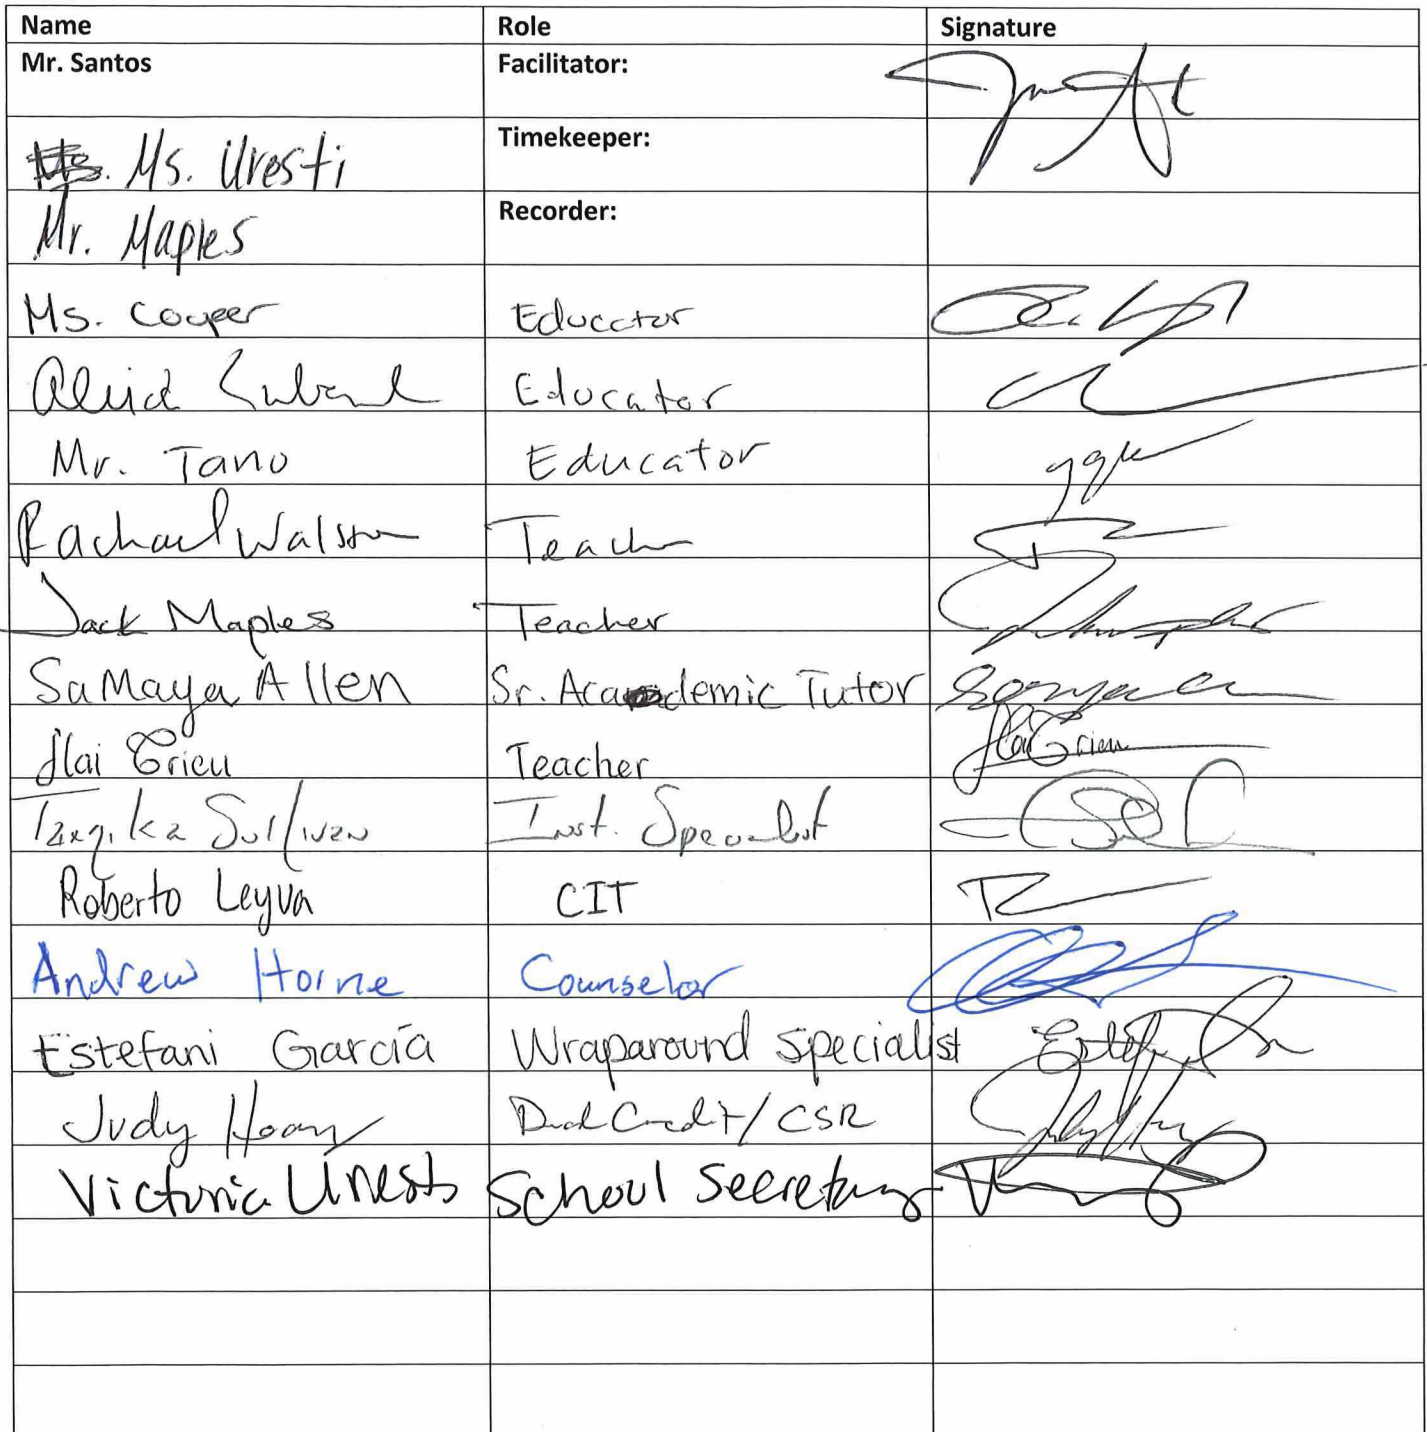 Name Role Signature
Mr. Santos Facilitator:
Ms. Uresti Timekeeper:
Mr. Maples Recorder:
Ms. Cooper Educator
Educator
Mr. Tano Educator
Rachael Walston Teacher
Jack Maples Teacher
SaMaya Allen Sr. Academic Tutor
Hai Trieu Teacher Hai Trieu
Sullivan Inst. Specialist
Roberto Leyva CIT
Andrew Horne Counselor
Estefani García Wraparound Specialist
Judy Dual Credit/CSR
Victoria Uresti School Secretary